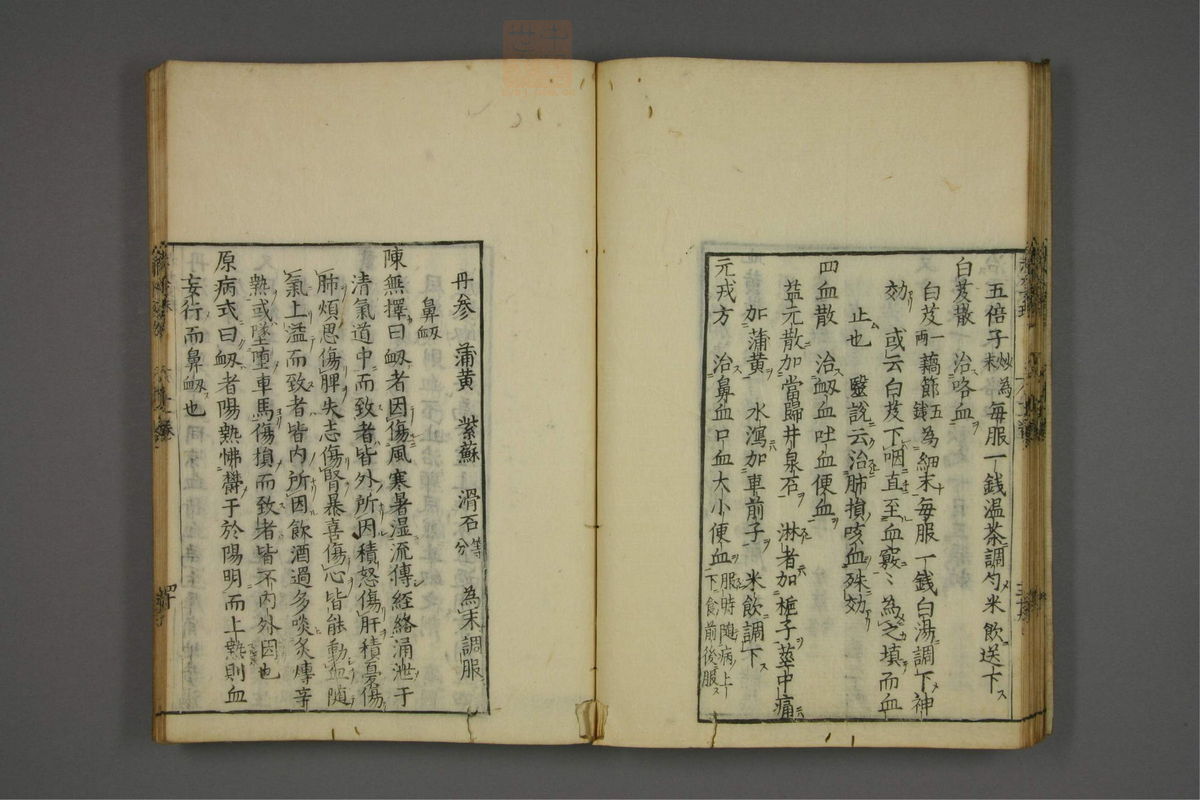 五倍子炒為末每服一錢温茶調勻米飲送下
白芨散　治咯血
白芨一両藕節五錢為細末每服一錢白湯調下神
効　或云白芨下咽直至血竅〻為之填而血
止也　醫說云治肺損咳血殊効
四血散　治衂血吐血便血
益元散加當歸井泉石　淋者加梔子莖中痛
加蒲黄　水瀉加車前子　米飲調下
元戎方　治鼻血口血大小便血服時隨病上下食前後服
丹參　蒲黄　紫蘇　滑石等分　為末調服
鼻衂
陳無擇曰衂者因傷風寒暑湿流傳経絡涌泄于
清氣道中而致者皆外所因積怒傷肝積憂傷
肺煩思傷脾失志傷腎暴喜傷心皆能動血隨
氣上溢而致者皆内所因飲酒過多啖炙煿辛
熱或墜堕車馬傷損而致者皆不内外因也
原病式曰衂者陽熱怫欝于於陽明而上熱則血
妄行而鼻衂也